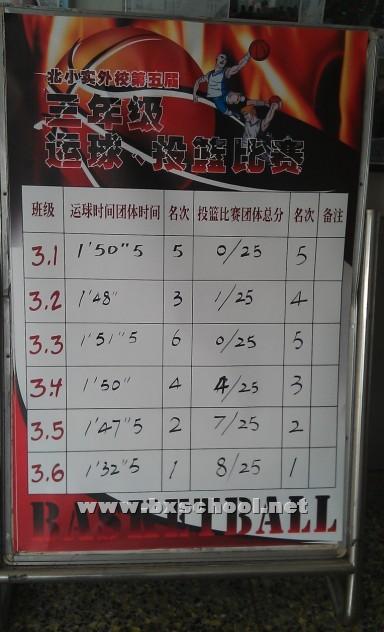 北小实外校第五届
三年级
运球、投篮比赛
班级 运球时间团体时间 名次 投篮比赛团体总分 名次 备注
3.1 1'50"5 5 0/25 5
3.2 1'48" 3 1/25 4
3.3 1'51"5 6 0/25 5
3.4 1'50" 4 4/25 3
3.5 1'47"5 2 7/25 2
3.6 1'32"5 1 8/25 1
www.bxschool.net
BASKETBALL